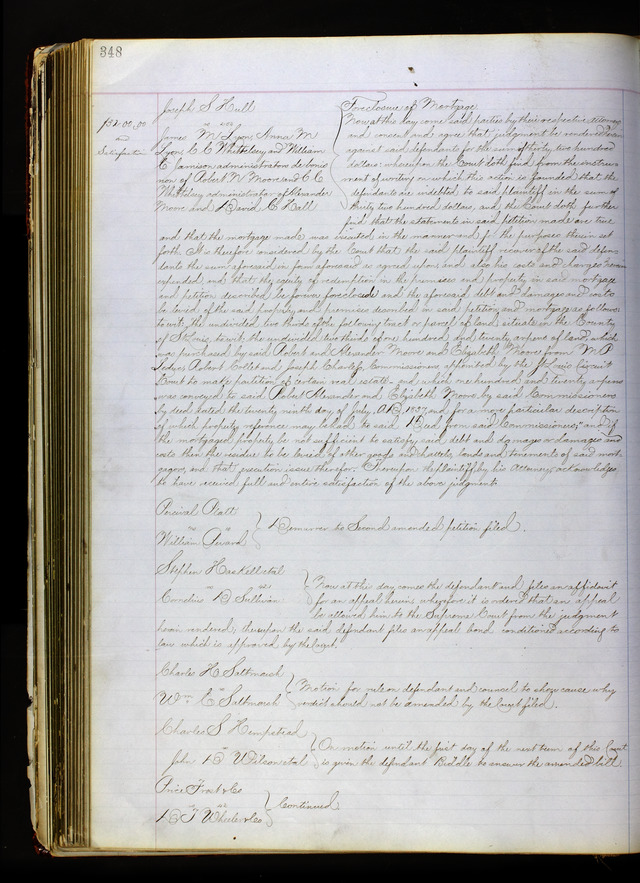 348
Joseph S Hull
Foreclosure of Mortgage
$3200.00
and
Satisfaction
vs
James M Lyon Anna M
Lyon C C Whittelsey and William
E Jamison administrators de bonis
non of Robert N Moore and C C
Whittelsey administrator of Alexander
Moore and David C Hall
Now at this day come said parties by their respective attorneys
and consent and agree that judgment be rendered
against said defendants for the sum of thirty two hundred
dollars whereupon the Court doth find from the instru-
ment of writing on which this action is founded that the
defendants are indebted to said plaintiff in the sum of
thirty two hundred dollars, and the Court doth further
find that the statements in said petition made are true
and that the mortgage made was executed in the manner and for the purposes therein set
forth It is therefore considered by the Court that the said plaintiff recover of the said defen-
dants the sum aforesaid in form aforesaid as agreed upon and also his costs and charges herein
expended, and that the equity of redemption in the premises and property in said mortgage
and petition described be forever foreclosed and the aforesaid debt and damages and costs
be levied of the said property and premises described in said petition and mortgage as follows
to wit the undivided two thirds of the following tract or parcel of land situate in the County
of St Louis, to wit the undivided two thirds of one hundred and twenty arpens of land, which
was purchased by said Robert and Alexander Moore and Elizabeth Moore from
Robert Collet and Joseph Charless Commissioners appointed by the St Louis Circuit
Court to make partition of certain real estate and which one hundred and twenty arpens
was conveyed to said Robert Alexander and Elizabeth Moore by said Commissioners
by deed dated the twenty ninth day of July, A D, 1837 and for a more particular description
of which property reference may be had to said "Deed from said Commissioners," and if
the mortgaged property be not sufficient to satisfy said debt and damages or damages and
costs then the residue to be levied of other goods and chattels lands and tenements of said mort-
gagors, and that execution issue therefor. Thereupon the plaintiff by his attorney, acknowledges
to have received full and entire satisfaction of the above judgment.
Percival Platt
vs
William
Demurrer to Second amended petition filed.
Stephen Haskell et al
vs
Cornelius D Sullivan
Now at this day comes the defendant and files an affidavit
for an appeal herein wherefore it is ordered that an appeal
be allowed him to the Supreme Court from the judgment
herein rendered, thereupon the said defendant files an appeal bond conditioned according to
law which is approved by the Court.
Charles H Saltmarsh
vs
Wm E Saltmarsh
Motion for rule on defendant and counsel to show cause why
should not be amended by the Court filed.
Charles S Hempstead
vs
John D Wilson et al
On motion until the first day of the next term of this Court
is given the defendant Biddle to answer the amended bill
Price Frost & Co
vs
D T Wheeler & Co
Continued